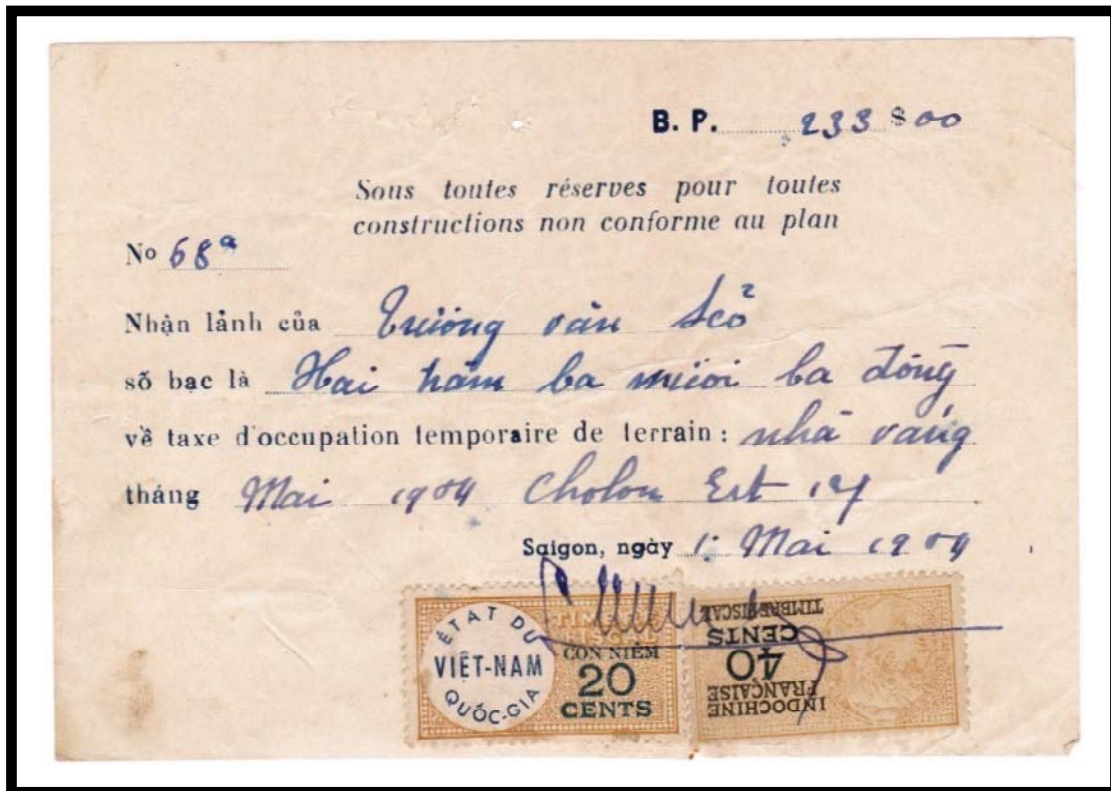 B. P. 233 $ 00
Sous toutes réserves pour toutes
constructions non conforme au plan
No 68ª
Nhận lảnh của Trương văn Sẻo
số bạc là Hai trăm ba mươi ba đồng
về taxe d'occupation temporaire de terrain : nhà
tháng Mai 1954 Cholon Est
Saigon, ngày 1: Mai 1954
ÉTAT DU
VIỆT-NAM
QUỐC-GIA
TIMBRE
FISCAL
CON NIÊM
20
CENTS
INDOCHINE
FRANÇAISE
40
CENTS
TIMBRE FISCAL